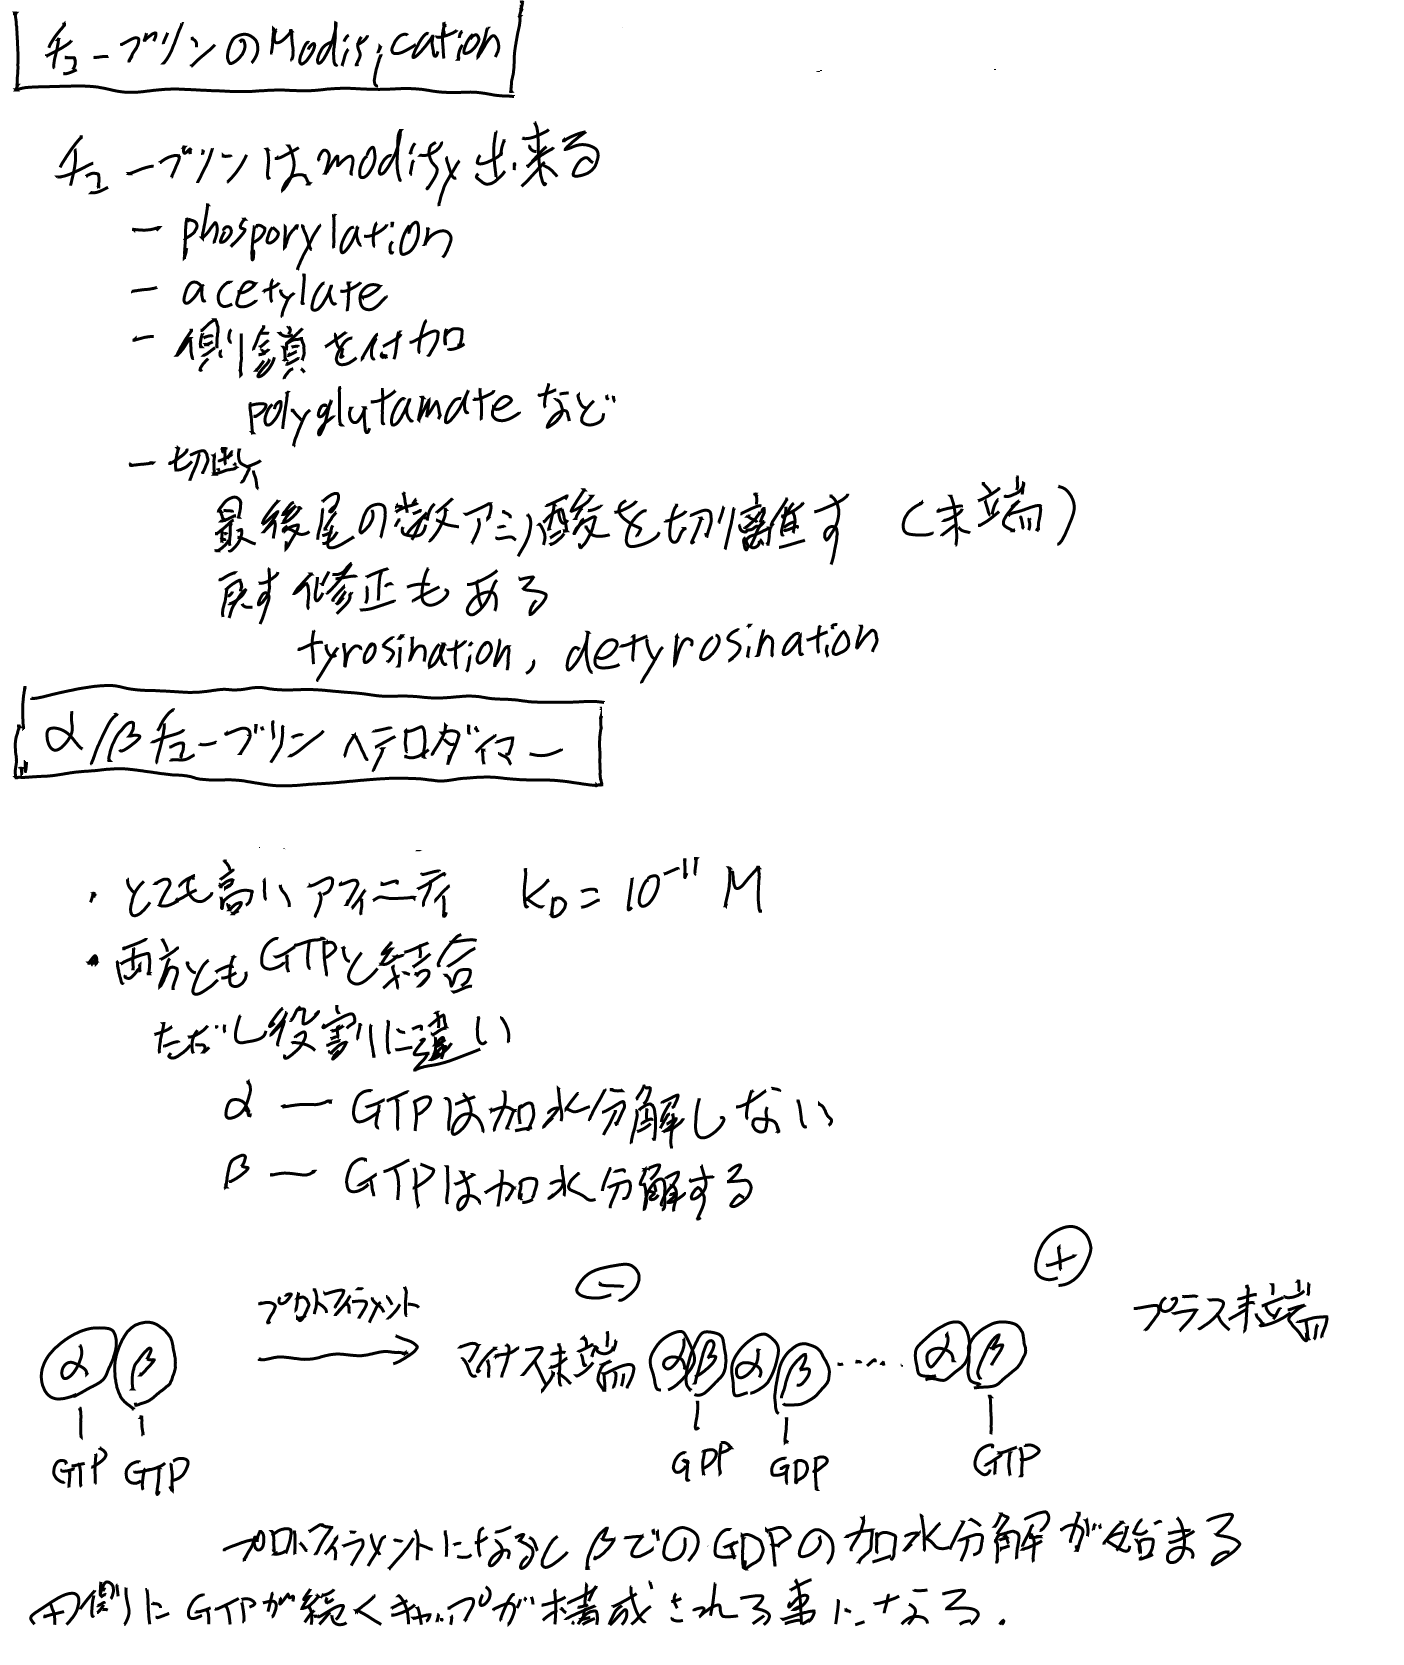 チューブリンのModification
チューブリンはmodify出来る
- phosporylation
- acetylate
- 側鎖を付加
polyglutamateなど
- 切断
最後尾の数アミノ酸を切り離す (末端)
戻す修正もある
tyrosination, detyrosination
α/βチューブリン ヘテロダイマー
・とても高いアフィニティ KD = 10⁻¹¹ M
・両方ともGTPと結合
ただし役割に違い
α ー GTPは加水分解しない
β ー GTPは加水分解する
プロトフィラメント
⊖
⊕
α β → マイナス末端 αβαβ ..... αβ プラス末端
GTP GTP GDP GDP GTP
プロトフィラメントになるとβでのGDPの加水分解が始まる
⊕側にGTPが続くキャップが構成される事になる.